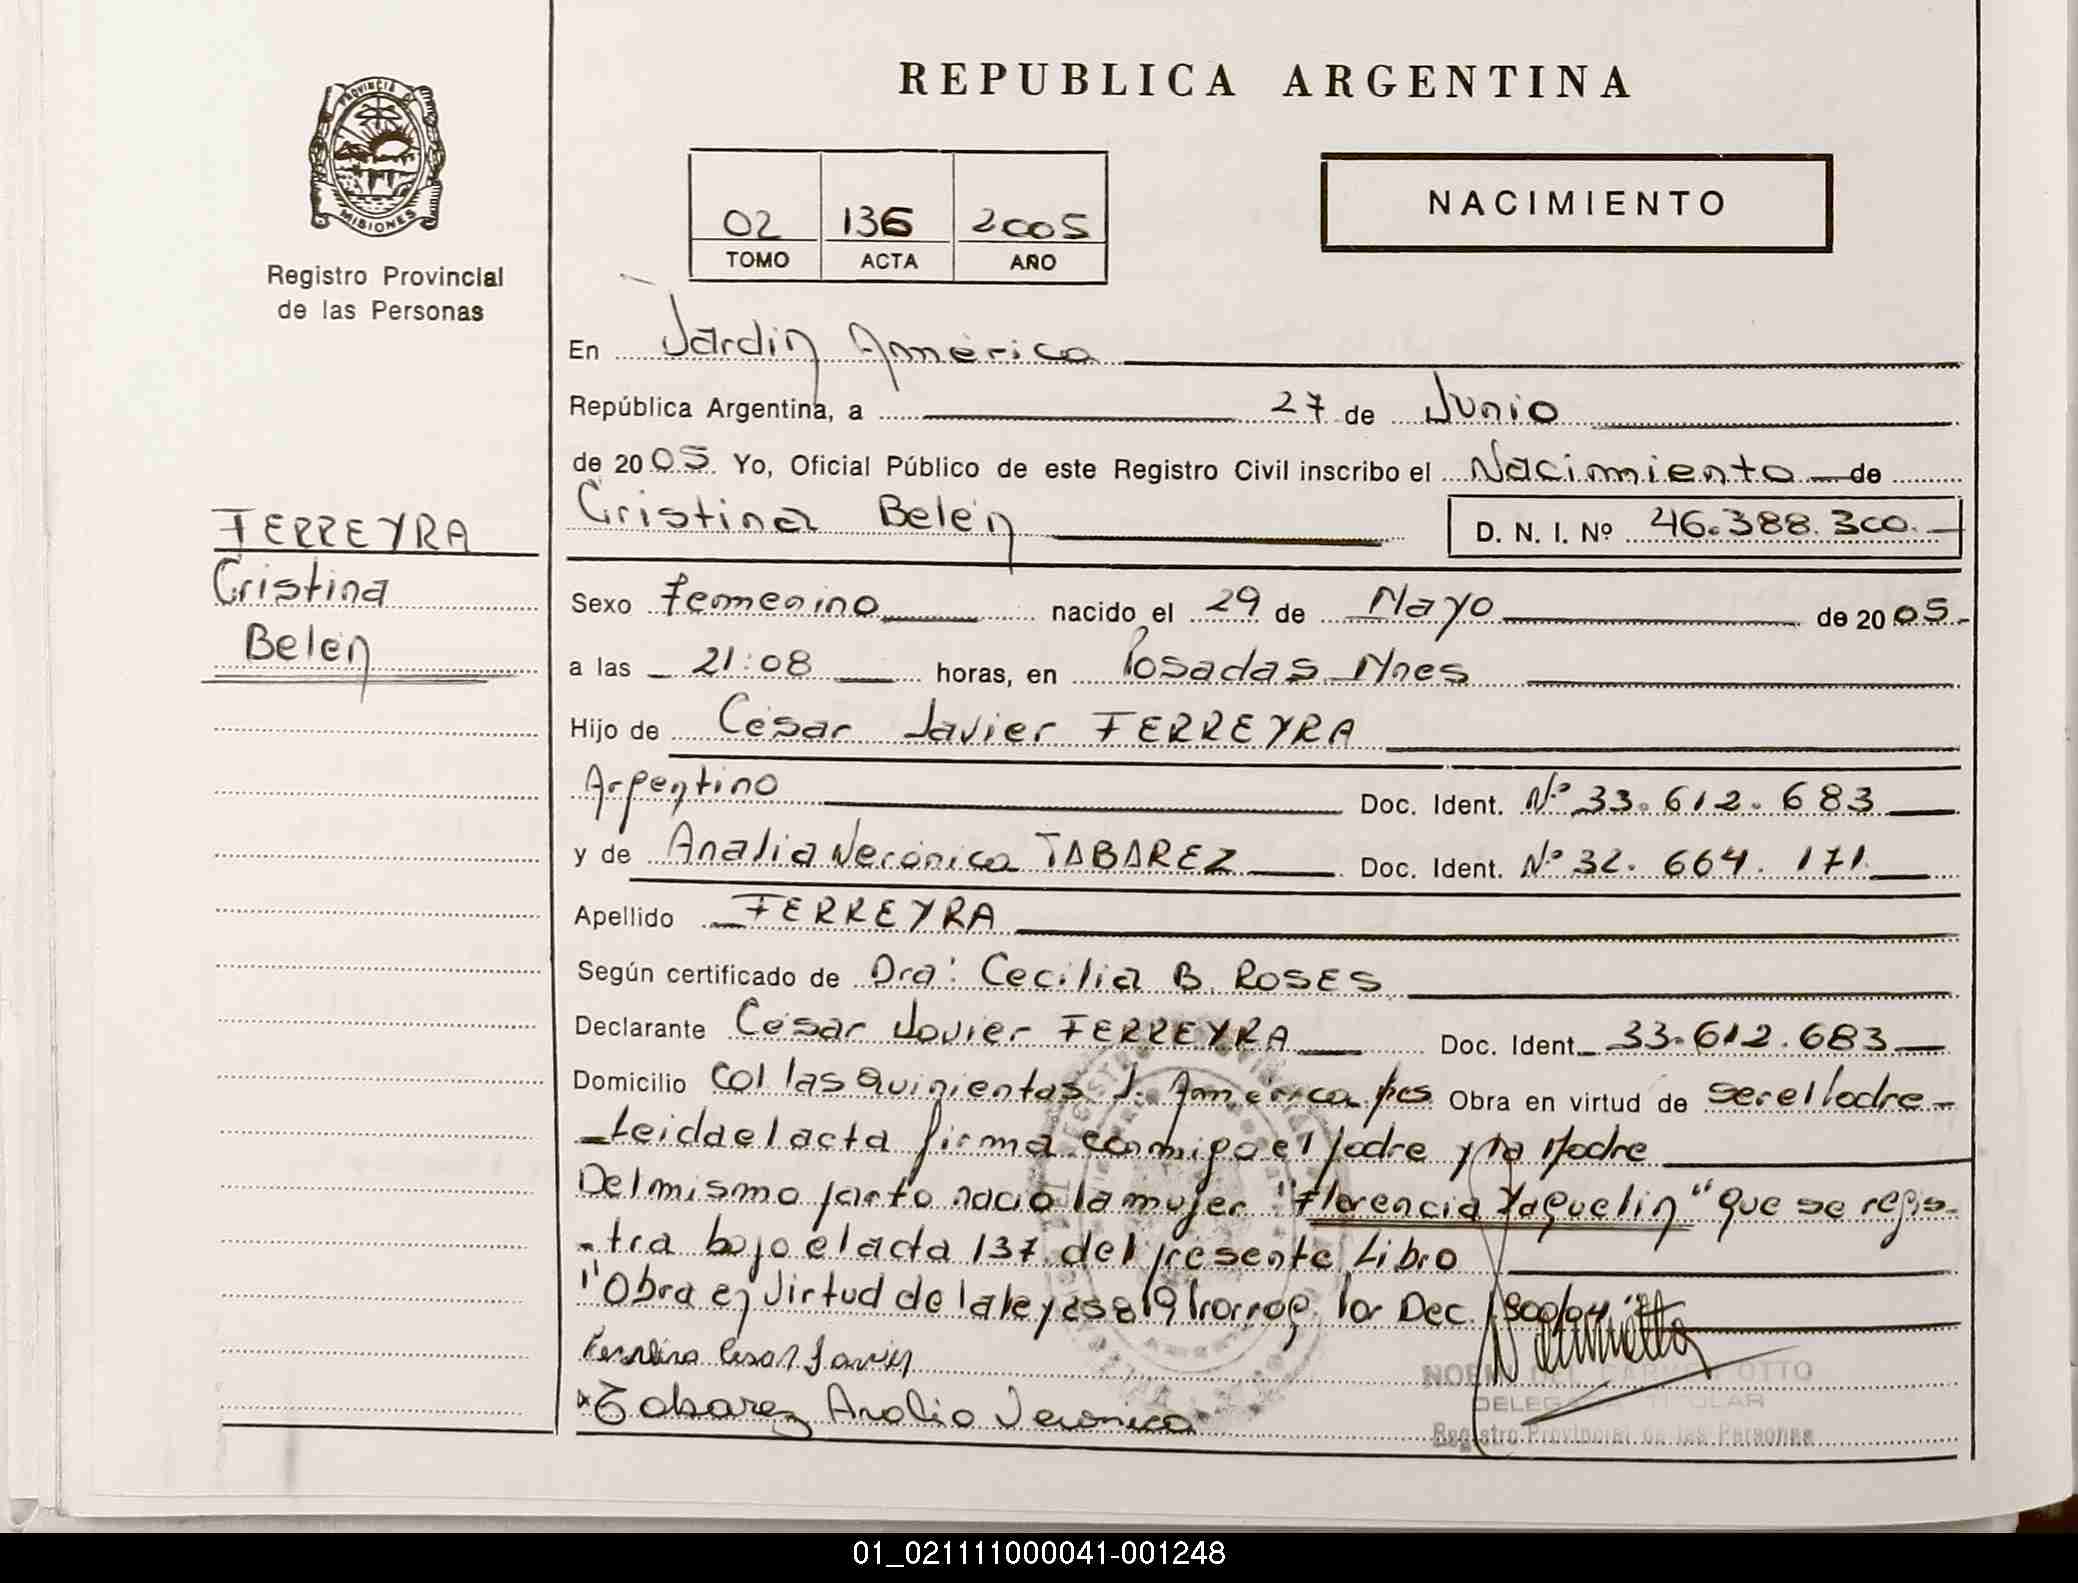 REPUBLICA ARGENTINA
PROVINCIA DE
MISIONES
Registro Provincial
de las Personas
02 136 2005
TOMO ACTA AÑO
NACIMIENTO
En Jardin América
República Argentina, a 27 de Junio
de 2005. Yo, Oficial Público de este Registro Civil inscribo el Nacimiento de
Cristina Belén D. N. I. Nº 46.388.300.
FERREYRA
Cristina
Belén
Sexo femenino nacido el 29 de Mayo de 2005.
a las 21:08 horas, en Posadas Mnes
Hijo de César Javier FERREYRA
Argentino Doc. Ident. Nº 33.612.683
y de Analia Verónica TABAREZ Doc. Ident. Nº 32.664.171
Apellido FERREYRA
Según certificado de Dra: Cecilia B. ROSES
Declarante César Javier FERREYRA Doc. Ident. 33.612.683
Domicilio Col las Quinientas J. América Obra en virtud de ser el Padre
Leida el acta firma conmigo el Padre y la Madre
Del mismo parto nació la mujer "Florencia Yaquelin" que se regis-
-tra bajo el acta 137 del presente Libro
"Obra en Virtud de la ley 25819 Prorrog. Por Dec. 1300/04"
Cesar Javier
Tabarez Analia Veronica
DEL OTTO
DELEGADA TITULAR
Registro Provincial de las Personas
01_021111000041-001248